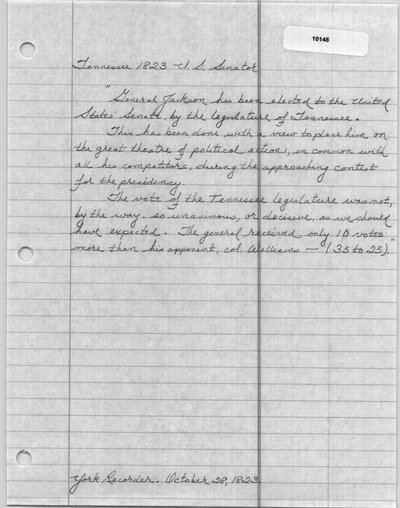 10148
Tennessee 1823 U.S. Senator
"General Jackson has been elected to the United
States' Senate, by the legislature of Tennessee.
This has been done with a view to place him on
the great theatre of political action, in common with
all his competitors, during the approaching contest
for the presidency.
The vote of the Tennessee legislature was not,
by the way, so unanimous, or decisive, as we should
have expected. The general received only 10 votes
more than his opponent, col. Williams — (35 to 25)."
York Recorder. October 28, 1823.